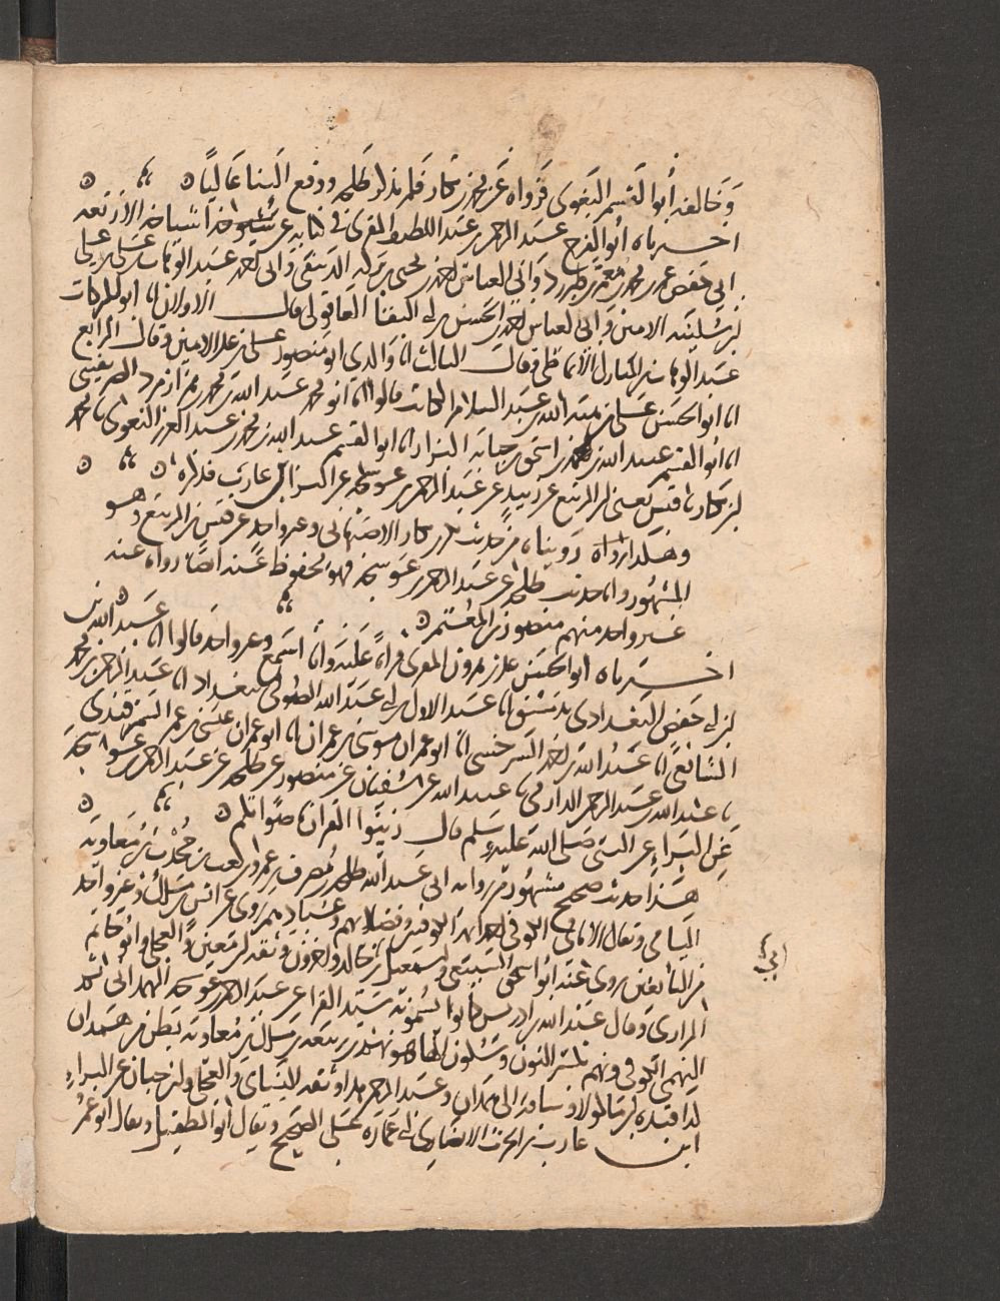 وخالفه أبو القسم البغوي فرواه عن محمد بن بكار فلم يذكر طلحة ووقع الينا عاليًا
اخبرناه أبو الفرج عبد الرحمن بن عبد اللطيف المقرئ في كتابه عن شيوخه اشياخه الأربعة
ابي حفص عمر بن محمد بن معمر بن طبرزد وابي العباس احمد بن يحيى بن بركة الدبيقي وابي احمد عبد الوهاب بن علي بن علي
بن سكينة الامين وابي العباس احمد بن الحسن بن ابي البقا العاقولي قال الاولان انا ابو البركات
عبد الوهاب بن المبارك الأنماطي وقال الثالث انا والدي ابو منصور علي بن علي الامين وقال الرابع
انا ابو الحسن علي بن هبة الله بن عبد السلام الكاتب قالوا انا أبو محمد عبد الله بن محمد بن هزارمرد الصريفيني
انا أبو القسم عبيد الله بن محمد بن اسحق بن حبابة البزار انا ابو القسم عبد الله بن محمد بن عبد العزيز البغوي نا محمد
بن بكار نا قيس يعني بن الربيع عن زبيد عن عبد الرحمن بن عوسجة عن البرا بن عازب فذكره
وهكذا رواه رويناه من حديث بكر بن بكار الاصبهاني وغير واحد عن قيس بن الربيع وهو
المشهور واما حديث طلحة عن عبد الرحمن بن عوسجة فهو محفوظ عنه ايضًا رواه عنه
غير واحد منهم منصور بن المعتمر
اخبرناه ابو الحسن علي بن هرون المقرئ قراءة عليه وانا اسمع وغير واحد قالوا انا عبد الله بن
بن ابي حفص البغدادي بدمشق انا عبد الاول بن ابي عبد الله الصوفي ببغداد انا عبد الرحمن بن محمد
الشافعي انا عبد الله بن احمد السرخسي انا ابو عمران موسى بن عمران انا ابو عمران عيسى بن عمر السمرقندي
نا عبد الله بن عبد الرحمن الدارمي نا عبيد الله عن سفيان عن منصور عن طلحة عن عبد الرحمن بن عوسجة
عن البراء عن النبي صلى الله عليه وسلم قال زينوا القرآن باصواتكم
هذا حديث صحيح مشهور من رواية ابي عبد الله طلحة بن مصرف بن عمرو بن كعب بن جخدب بن معاوية
اليامي ويقال الايامي الكوفي احد ايمة الكوفة وفضلايهم وعبادهم روى عن انس بن مالك وغير واحد
من التابعين روى عنه ابو اسحق السبيعي واسمعيل بن ابي خالد واخرون وثقه ابن معين والعجلي وابو حاتم
الرازي وقال عبد الله بن ادريس كانوا يسمونه سيد القراء عن عبد الرحمن بن عوسجة الهمداني ثم
النهمي الكوفي ونهم بكسر النون وسكون الهاء هو نهم بن ربيعة بن مالك بن معاوية بطن من همدان
عبد الرحمن هذا وثقه النسائي والعجلي وابن حبان عن البراء
ابن عازب بن الحرث الانصاري ابي عمارة على الصحيح ويقال أبو الطفيل ويقال ابو عمرو